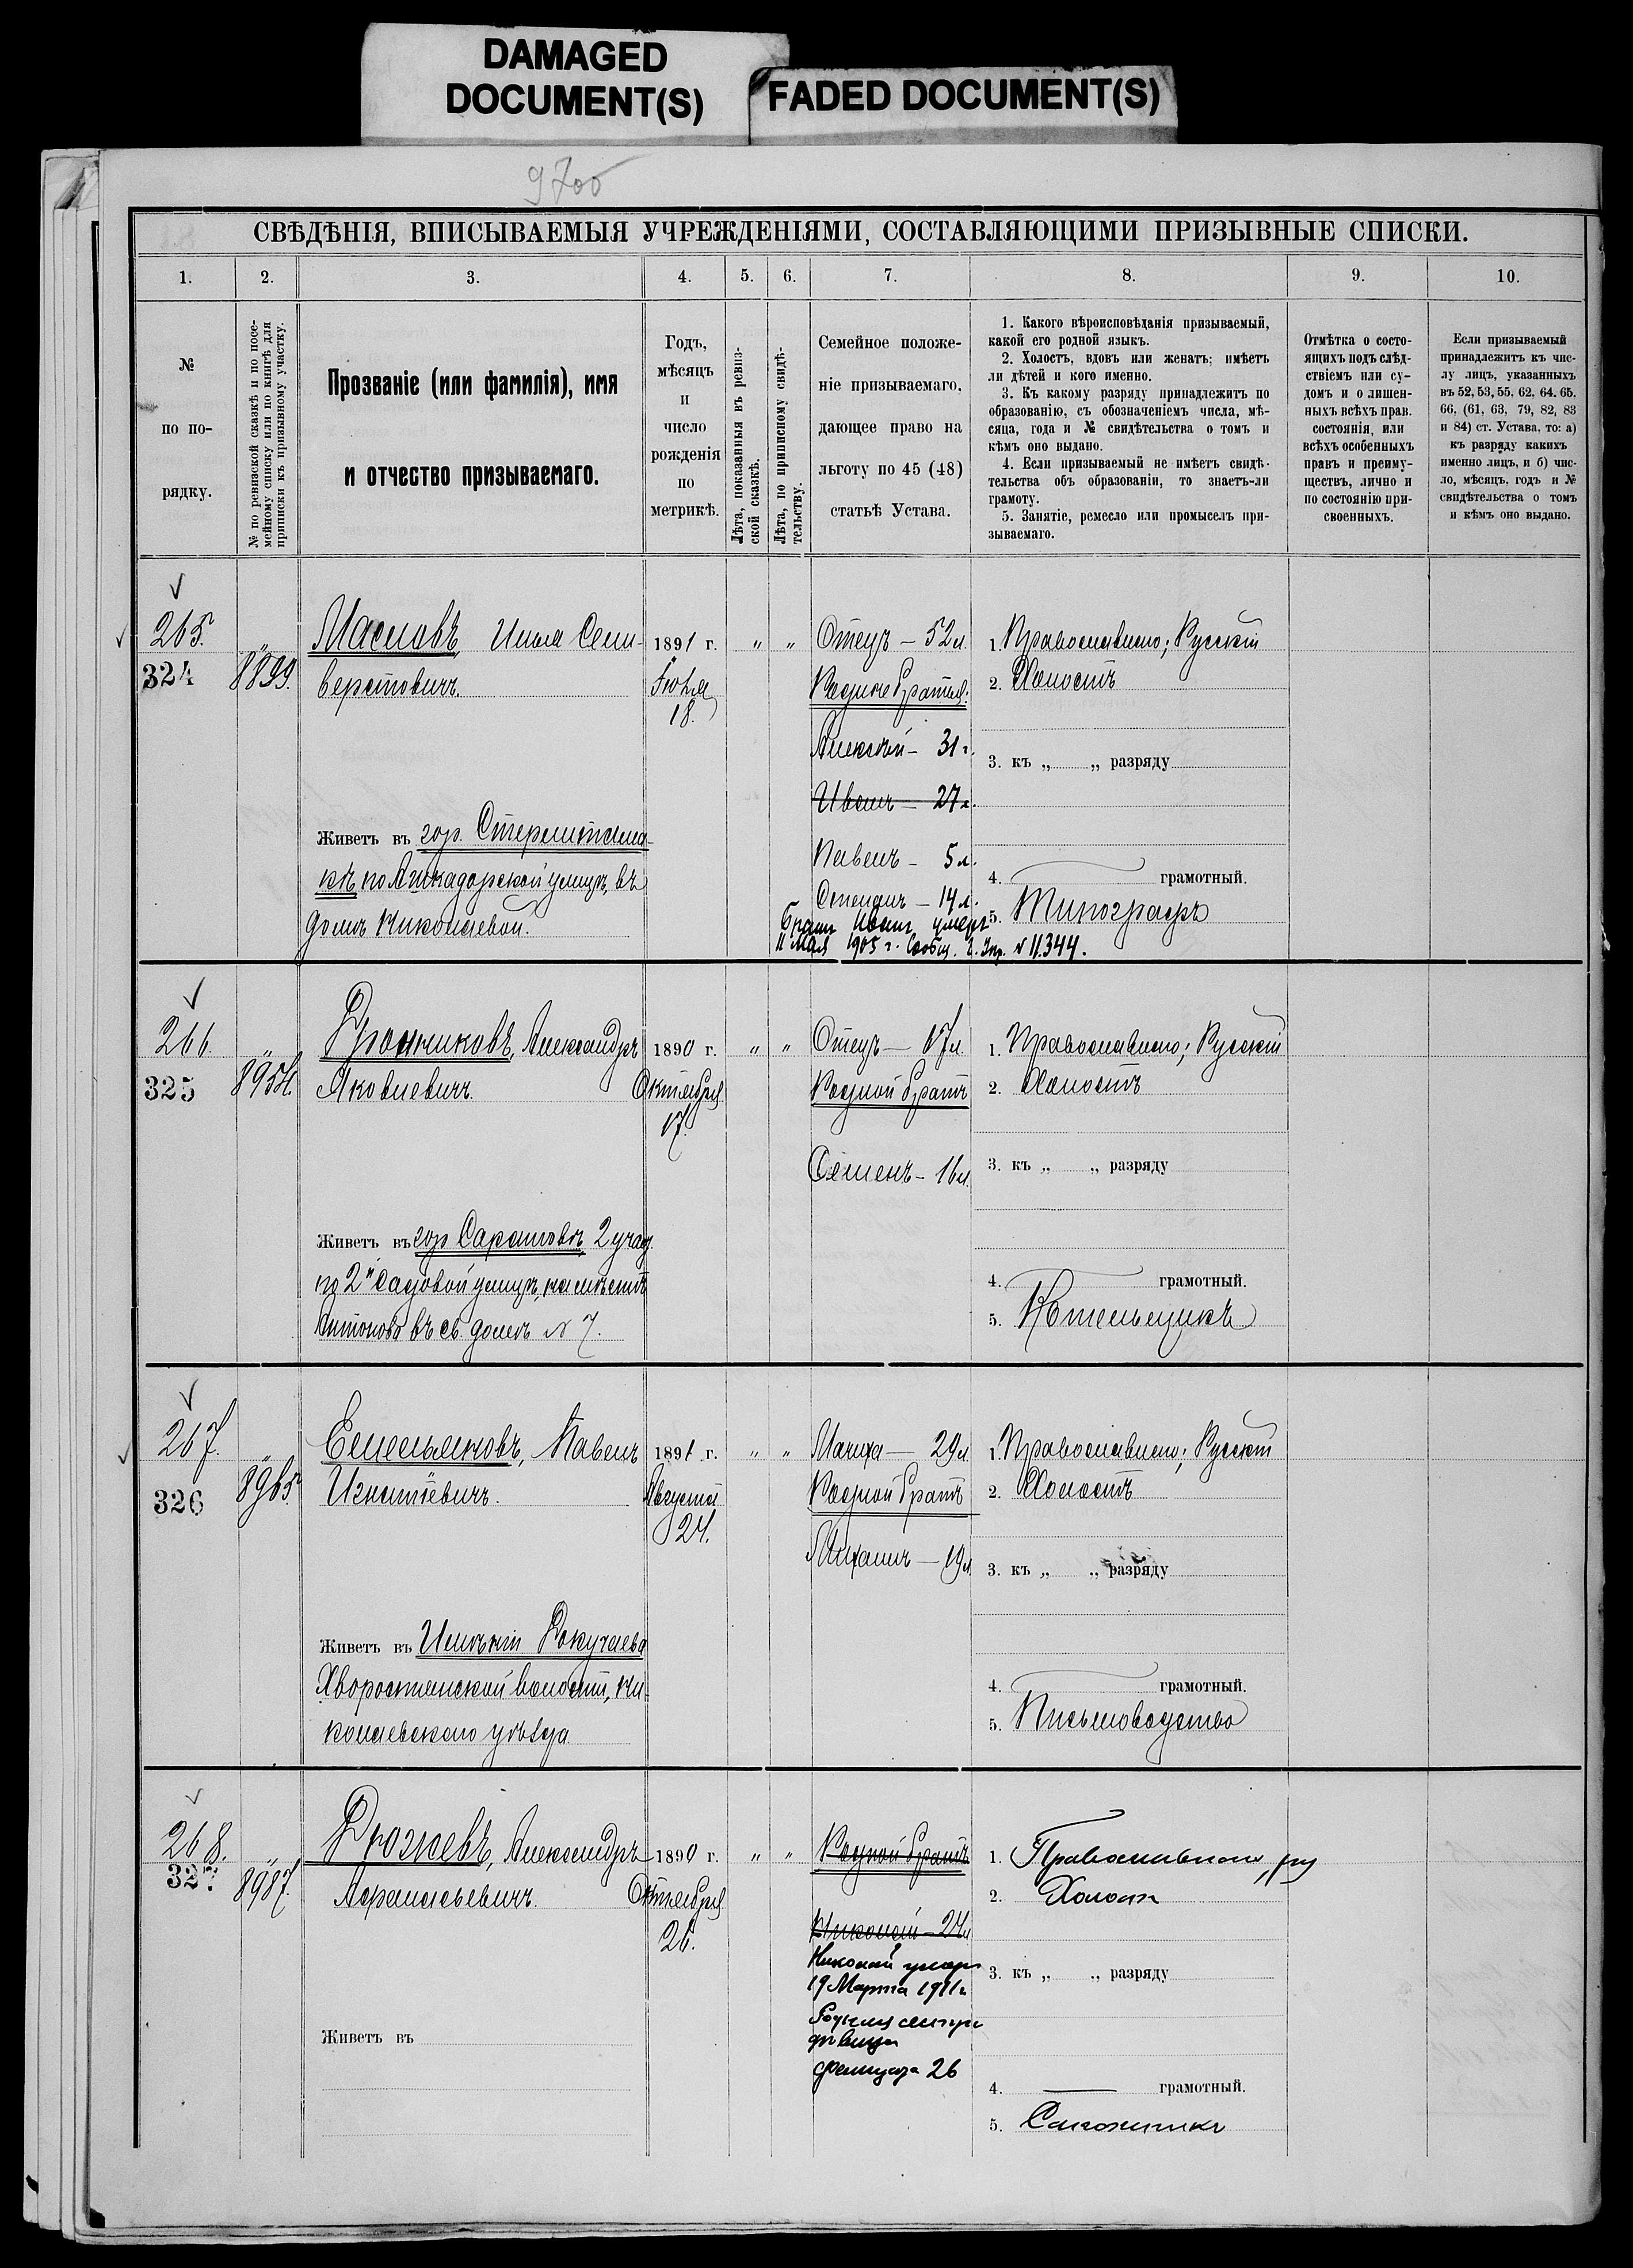 DAMAGED
DOCUMENT(S)
FADED DOCUMENT(S)
9700
СВѢДѢНІЯ, ВПИСЫВАЕМЫЯ УЧРЕЖДЕНІЯМИ, СОСТАВЛЯЮЩИМИ ПРИЗЫВНЫЕ СПИСКИ.
1. 2. 3. 4. 5. 6. 7. 8. 9. 10.
№
по по-
рядку.
№ по ревизской сказкѣ и по посе-
мейному списку или по книгѣ для
приписки къ призывному участку.
Прозваніе (или фамилія), имя
и отчество призываемаго.
Годъ,
мѣсяцъ
и
число
рожденія
по
метрикѣ.
Лѣта, показанныя въ ревиз-
ской сказкѣ.
Лѣта, по приписному свидѣ-
тельству.
Семейное положе-
ніе призываемаго,
дающее право на
льготу по 45 (48)
статьѣ Устава.
1. Какого вѣроисповѣданія призываемый,
какой его родной языкъ.
2. Холостъ, вдовъ или женатъ; имѣетъ
ли дѣтей и кого именно.
3. Къ какому разряду принадлежитъ по
образованію, съ обозначеніемъ числа, мѣ-
сяца, года и № свидѣтельства о томъ и
кѣмъ оно выдано.
4. Если призываемый не имѣетъ свидѣ-
тельства объ образованіи, то знаетъ-ли
грамоту.
5. Занятіе, ремесло или промыселъ при-
зываемаго.
Отмѣтка о состо-
ящихъ подъ слѣд-
ствіемъ или су-
домъ и о лишен-
ныхъ всѣхъ прав.
состоянія, или
всѣхъ особенныхъ
правъ и преиму-
ществъ, лично и
по состоянію при-
своенныхъ.
Если призываемый
принадлежитъ къ чис-
лу лицъ, указанныхъ
въ 52, 53, 55, 62, 64, 65,
66, (61, 63, 79, 82, 83
и 84) ст. Устава, то: а)
къ разряду какихъ
именно лицъ, и б) чис-
ло, мѣсяцъ, годъ и №
свидѣтельства о томъ
и кѣмъ оно выдано.
265.
324
„
8899.
Масловъ, Илья Сели-
верстовичъ.
1891 г.
Іюля
18.
„ „
Отецъ — 52 л.
Родные братья:
Алексѣй — 31 г.
Иванъ — 27 л.
Павелъ — 5 л.
Степанъ — 14 л.
Братъ Иванъ умеръ
11 Мая 1905 г. Сообщ. Г. Упр. № 11.344.
1. Православнаго; Русскій
2. Холостъ
3. къ „ „ разряду
4. грамотный.
5. Типографъ
Живетъ въ гор. Стерлитама-
кѣ, по Ашкадарской улицѣ, въ
домѣ Николаевой.
266.
325
„
8954.
Дрожниковъ, Александръ
Яковлевичъ.
1890 г.
Октября
17.
„ „
Отецъ — 
Родной братъ
Семенъ — 16 л.
1. Православнаго; Русскій
2. Холостъ
3. къ „ „ разряду
4. грамотный.
5. Котельщикъ
Живетъ въ гор. Саратовѣ, 2 участ.
по 2й Садовой улицѣ, на мѣстѣ
Антонова въ св. домѣ № 7.
267.
326
„
8965.
Емельяновъ, Павелъ
Игнатіевичъ.
1891 г.
Августа
24.
„ „
Мачиха — 29 л.
Родной братъ
Михаилъ — 19 л.
1. Православнаго; Русскій
2. Холостъ
3. къ „ „ разряду
4. грамотный.
5. Письмоводство
Живетъ въ Имѣніи Докучаева
Хворостянской волости, Ни-
колаевскаго уѣзда
268.
327
„
8987.
Дюжевъ, Александръ
Афанасьевичъ.
1890 г.
Октября
26.
„ „
Родной братъ
Николай — 24 л.
Николай умеръ
19 Марта 1911 г.
Родная сестра
дѣвица
26
1. Православнаго, ру
2. Холостъ
3. къ „ „ разряду
4. грамотный.
5. Сапожникъ
Живетъ въ